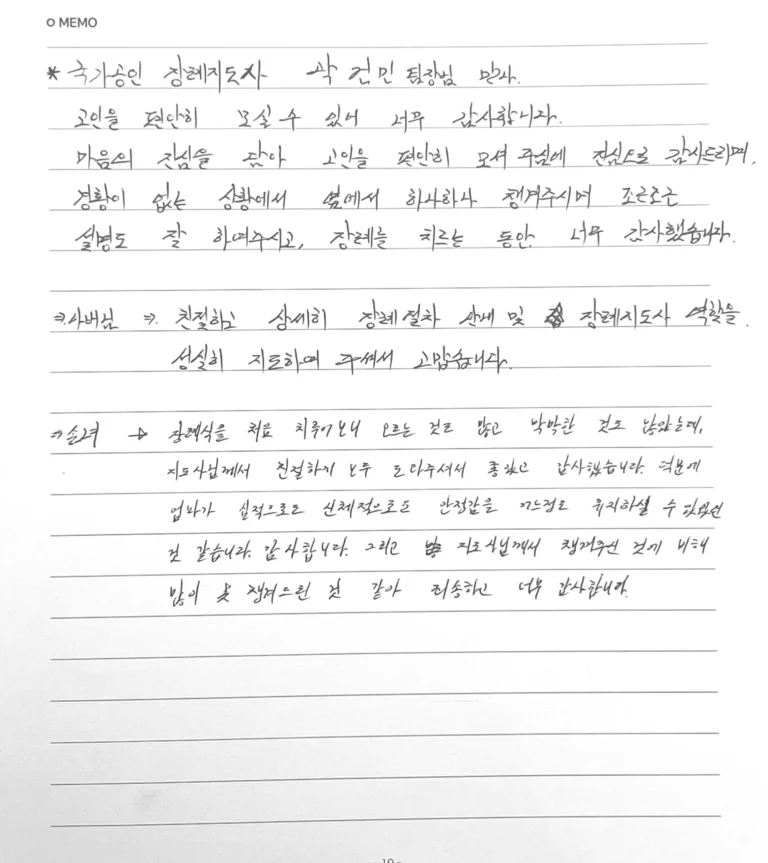 MEMO
* 국가공인 장례지도사 곽건민 팀장님 만사.
고인을 편안히 모실 수 있어 너무 감사합니다.
마음의 진심을 담아 고인을 편안히 모셔 주심에 진심으로 감사드리며,
경황이 없는 상황에서 옆에서 하나하나 챙겨주시며 조근조근
설명도 잘 하여주시고, 장례를 치르는 동안 너무 감사했습니다.
⇒ 사버님 ⇒ 친절하고 상세히 장례절차 안내 및 장례지도사 역할을
성실히 지도하여 주셔서 고맙습니다.
⇒ 손녀 → 장례식을 처음 치루어보니 모르는 것도 많고 막막한 것도 많았는데,
지도사님께서 친절하게 모두 도와주셔서 좋았고 감사했습니다. 덕분에
엄마가 심적으로도 신체적으로도 안정감을 느정도 유지하실 수 있었던
것 같습니다. 감사합니다. 그리고 지도사님께서 챙겨주신 것에 비해
많이 못 챙겨드린 것 같아 죄송하고 너무 감사합니다.